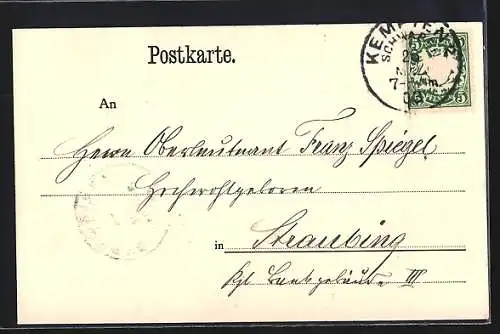 Postkarte.
KEMPTEN
SCHWAB
5 5
An
Herrn Oberleutnant Franz Spiegel,
Hochwohlgeboren
in Straubing
Kgl. Bankgebäude III